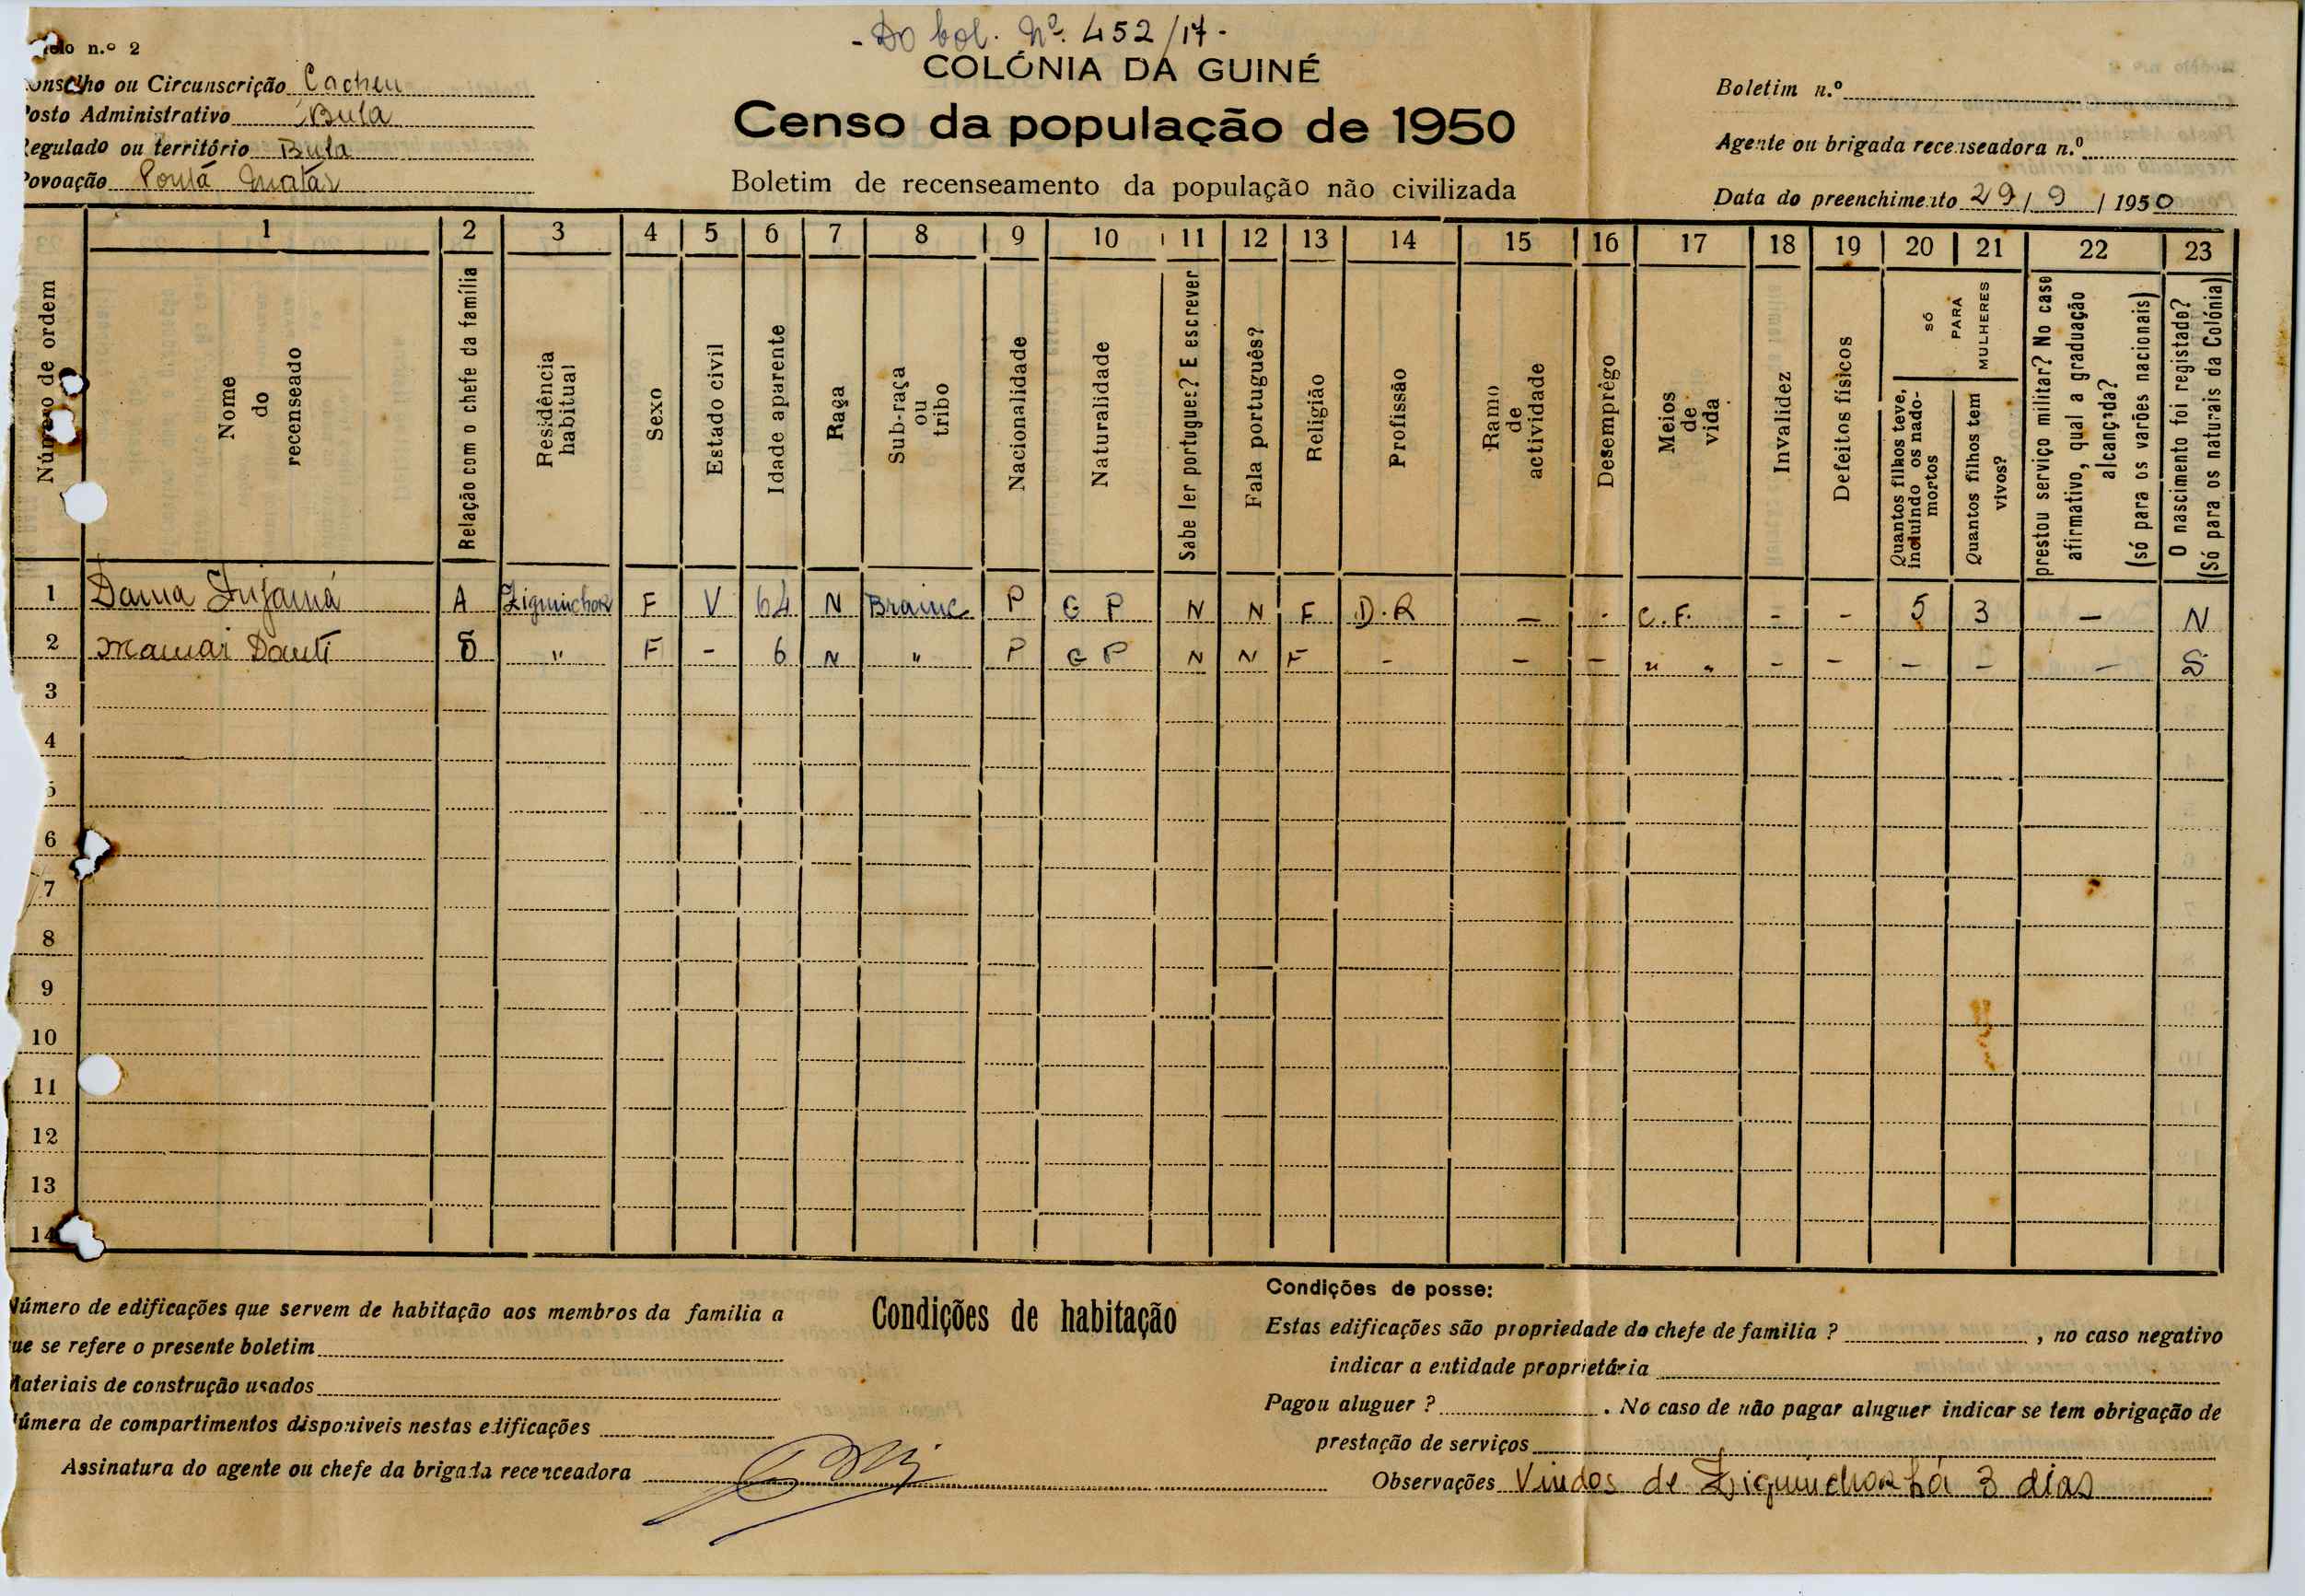 - Do bol. Nº. 452/17 -
elo n.º 2
COLÓNIA DA GUINÉ
Censo da população de 1950
Boletim de recenseamento da população não civilizada
onselho ou Circunscrição Cacheu
Posto Administrativo Bula
Regulado ou território Bula
Povoação Pontá
Boletim n.º
Agente ou brigada recenseadora n.º
Data do preenchimento 29 / 9 / 1950
1 2 3 4 5 6 7 8 9 10 11 12 13 14 15 16 17 18 19 20 21 22 23
Número de ordem
Nome
do
recenseado
Relação com o chefe da família
Residência
habitual
Sexo
Estado civil
Idade aparente
Raça
Sub-raça
ou
tribo
Nacionalidade
Naturalidade
Sabe ler portugues? E escrever
Fala português?
Religião
Profissão
Ramo
de
actividade
Desemprêgo
Meios
de
vida
Invalidez
Defeitos físicos
SÓ
PARA
MULHERES
Quantos filhos teve,
incluindo os nado-
mortos
Quantos filhos tem
vivos?
prestou serviço militar? No caso
afirmativo, qual a graduação
alcançda?
(só para os varões nacionais)
O nascimento foi registado?
(Só para os naturais da Colónia)
1 Dama Injamá A Ziguinchor F V 64 N Brame P G P N N F D.R — - C.F. - - 5 3 — N
2 Mamai Danti S " F - 6 N " P G P N N F - — — " " - - — — — S
3
4
5
6
7
8
9
10
11
12
13
14
Número de edificações que servem de habitação aos membros da familia a
ue se refere o presente boletim
Materiais de construção usados
úmera de compartimentos disponiveis nestas edificações
Assinatura do agente ou chefe da brigada recenceadora
Condições de habitação
Condições de posse:
Estas edificações são propriedade do chefe de familia ? , no caso negativo
indicar a entidade proprietária
Pagou aluguer ? . No caso de não pagar aluguer indicar se tem obrigação de
prestação de serviços
Observações Vindos de Ziguinchor há 3 dias